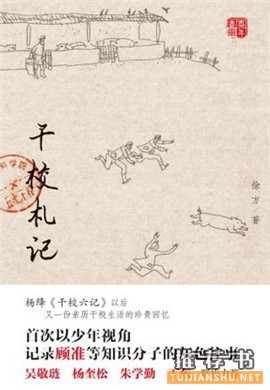 干校札记
徐方 著
科学院
杨绛《干校六记》以后
又一份亲历干校生活的珍贵回忆
首次以少年视角
记录顾准等知识分子的
吴敬琏 杨奎松 朱学勤
推荐书
TUIJIANSHU.NET